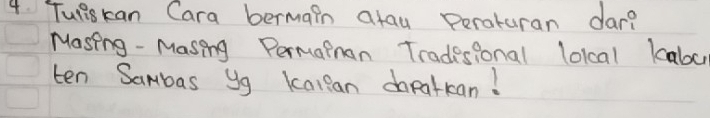 4. Tuliskan Cara bermain atau Peraturan dari
Masing-Masing Permainan Tradisional lokal kabu
ten Sambas yg kalian dapatkan!